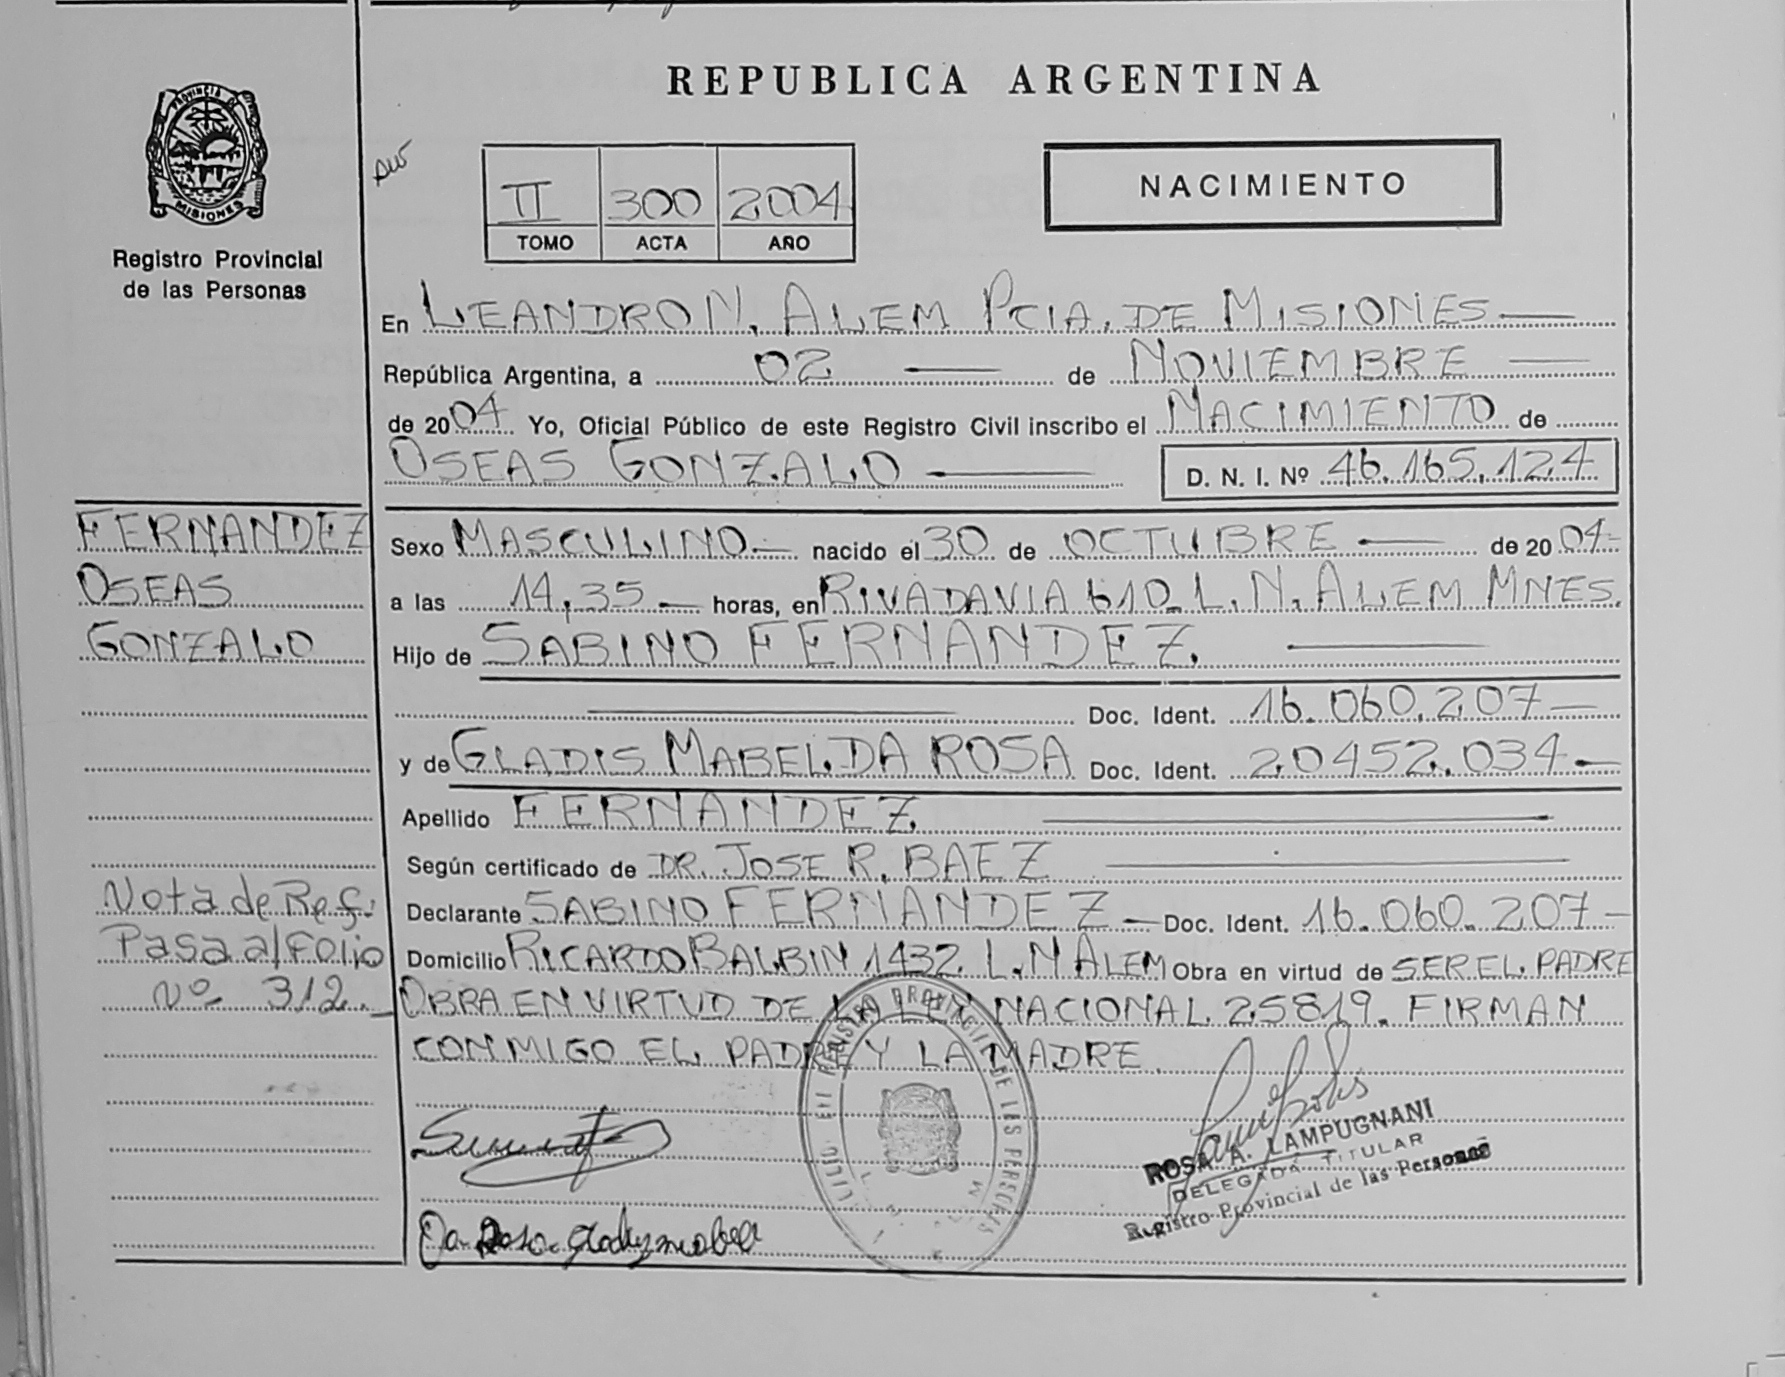 REPUBLICA ARGENTINA
PROVINCIA DE
MISIONES
Registro Provincial
de las Personas
II 300 2004
TOMO ACTA AÑO
NACIMIENTO
En LEANDRO N. ALEM PCIA. DE MISIONES
República Argentina, a 02 de NOVIEMBRE
de 2004 Yo, Oficial Público de este Registro Civil inscribo el NACIMIENTO de
OSEAS GONZALO D. N. I. Nº 46.165.124
FERNANDEZ
OSEAS
GONZALO
Sexo MASCULINO nacido el 30 de OCTUBRE de 2004
a las 14,35 horas, en RIVADAVIA 610 L.N. ALEM MNES.
Hijo de SABINO FERNANDEZ
Doc. Ident. 16.060.207
y de GLADIS MABEL DA ROSA Doc. Ident. 20452.034
Apellido FERNANDEZ
Según certificado de DR. JOSE R. BAEZ
Declarante SABINO FERNANDEZ Doc. Ident. 16.060.207
Domicilio RICARDO BALBIN 1432 L.N ALEM Obra en virtud de SER EL PADRE
OBRA EN VIRTUD DE LA LEY NACIONAL 25819. FIRMAN
CONMIGO EL PADRE Y LA MADRE.
Nota de Ref.
Pasa al Folio
Nº 312
ROSA A. LAMPUGNANI
DELEGADA TITULAR
Registro Provincial de las Personas
Da Rosa Gladys mabel